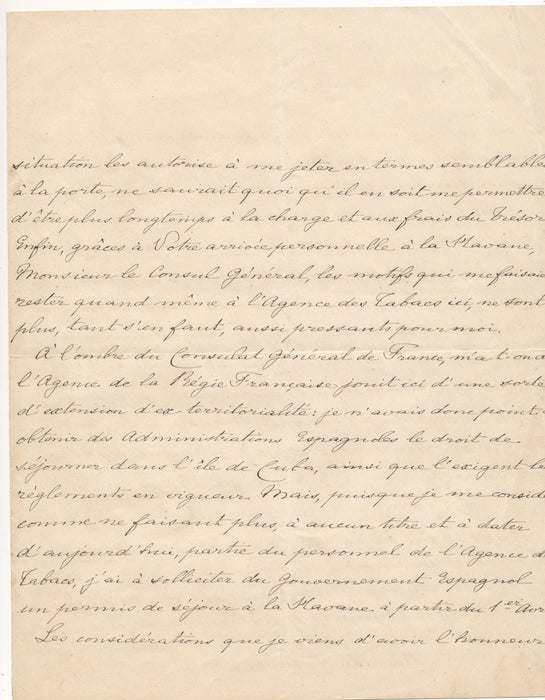 situation les autorise à me jeter en termes semblables
à la porte, ne saurait quoi qu'il en soit me permettre
d'être plus longtemps à la charge et aux frais du Trésor
Enfin, grâces à Votre arrivée personnelle à la Havane,
Monsieur le Consul Général, les motifs qui me faisaie
rester quand même à l'Agence des Tabacs ici, ne sont
plus, tant s'en faut, aussi pressants pour moi.
À l'ombre du Consulat Général de France, m'a-t-on a
l'Agence de la Régie Française jouit ici d'une sorte
d'extension d'ex territorialité: je n'avais donc point
obtenir des Administrations Espagnoles le droit de
séjourner dans l'île de Cuba, ainsi que l'exigent les
règlements en vigueur. Mais, puisque je me consid
comme ne faisant plus, à aucun titre et à dater
d'aujourd'hui, partie du personnel de l'Agence d
Tabacs, j'ai à solliciter du Gouvernement Espagnol
un permis de séjour à la Havane à partir du 1er Avr
Les considérations que je viens d'avoir l'honneur